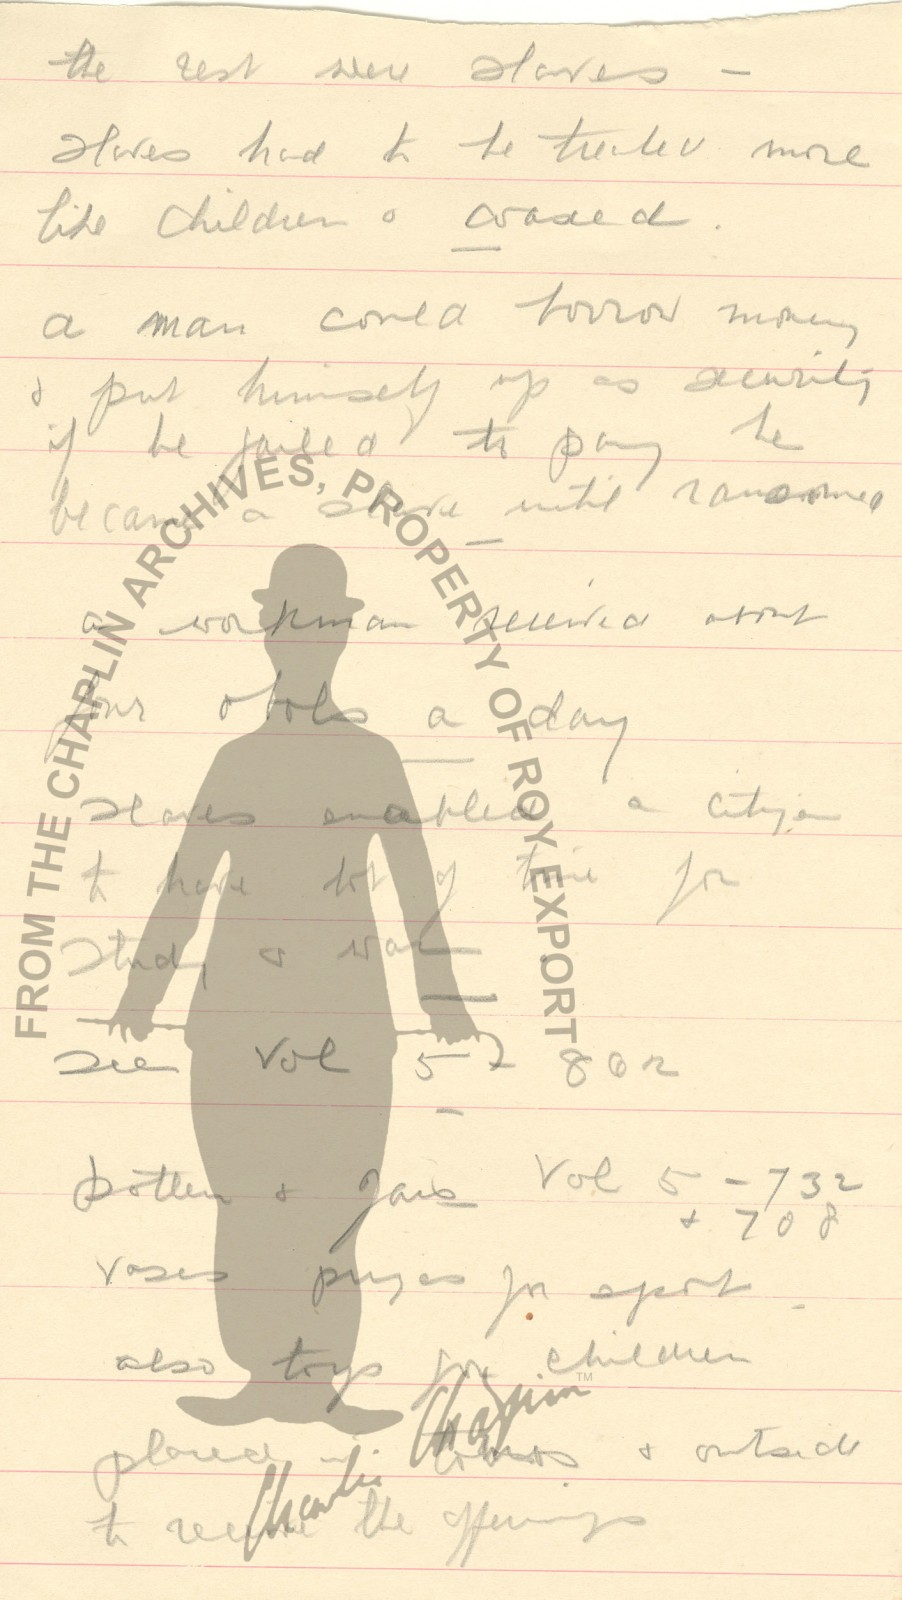 the rest were slaves -
slaves had to be treated more
like children & coaxed.
a man could borrow money
& put himself up as security
if he failed to pay he
became a slave until ransomed
a workman received about
four obols a day
slaves enabled a citizen
to have lot of time for
study & war
see Vol 5 - 862
potten & jars Vol 5 - 732
+ 708
vases prizes for sport -
also toys for children
placed in tombs & outside
to receive the offerings
FROM THE CHAPLIN ARCHIVES, PROPERTY OF ROY EXPORT
Charlie Chaplin™